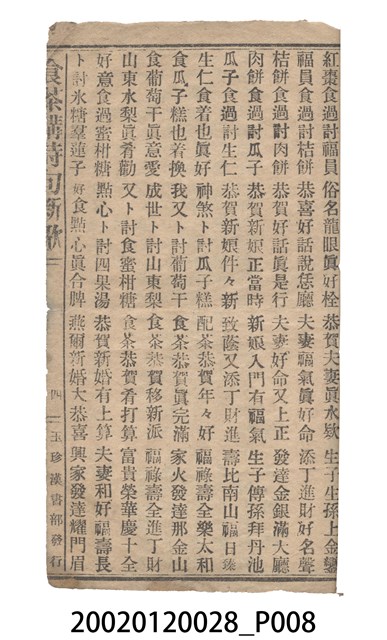 紅棗食過討福員　俗名龍眼眞好栓　恭賀夫妻眞水欵　生子生孫上金鑾
福員食過討桔餅　恭喜好話說恁廳　夫妻福氣眞好命　添丁進財好名聲
桔餅食過討肉餅　恭賀好話眞是行　夫妻好命又上正　發達金銀滿大廳
肉餅食過討瓜子　恭賀新娘正當時　新娘入門有福氣　生子傳孫拜丹池
瓜子食過討生仁　恭賀新娘件々新　致蔭又添丁財進　壽比南山福日臻
生仁食着也眞好　神煞卜討瓜子糕　配茶恭賀年々好　福祿壽全樂太和
食瓜子糕也着換　我又卜討葡萄干　食茶恭賀眞完滿　家火發達那金山
食葡萄干眞意愛　成世卜討山東梨　食茶恭賀移新派　福祿壽全進丁財
山東水梨眞肴勸　又卜討食蜜柑糖　食茶恭賀肴打算　富貴榮華慶十全
好意食過蜜柑糖　點心卜討四果湯　恭賀新婚有上算　夫妻和好福壽長
卜討氷糖羣蓮子　好食點心眞合脾　燕爾新婚大恭喜　興家發達耀門眉
食茶講詩句新歌
四
玉珍漢書部發行
20020120028_P008